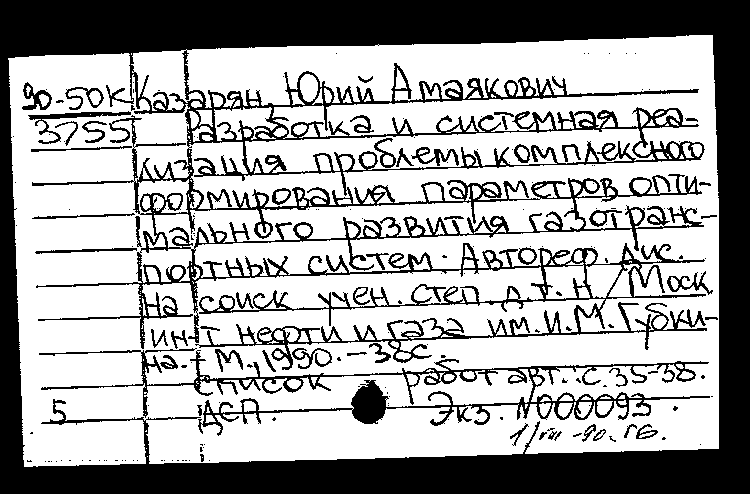 90-50К Казарян, Юрий Амаякович
3755 Разработка и системная реа-
лизация проблемы комплексного
формирования параметров опти-
мального развития газотранс-
портных систем: Автореф. дис.
на соиск учен. степ. д.т.н / Моск
ин-т нефти и газа им. И.М. Губки-
на. - М., 1990. - 38с.
список работ авт.: с. 35-38.
5 ДСП. Экз. N000093.
1/VIII -90. ГБ.